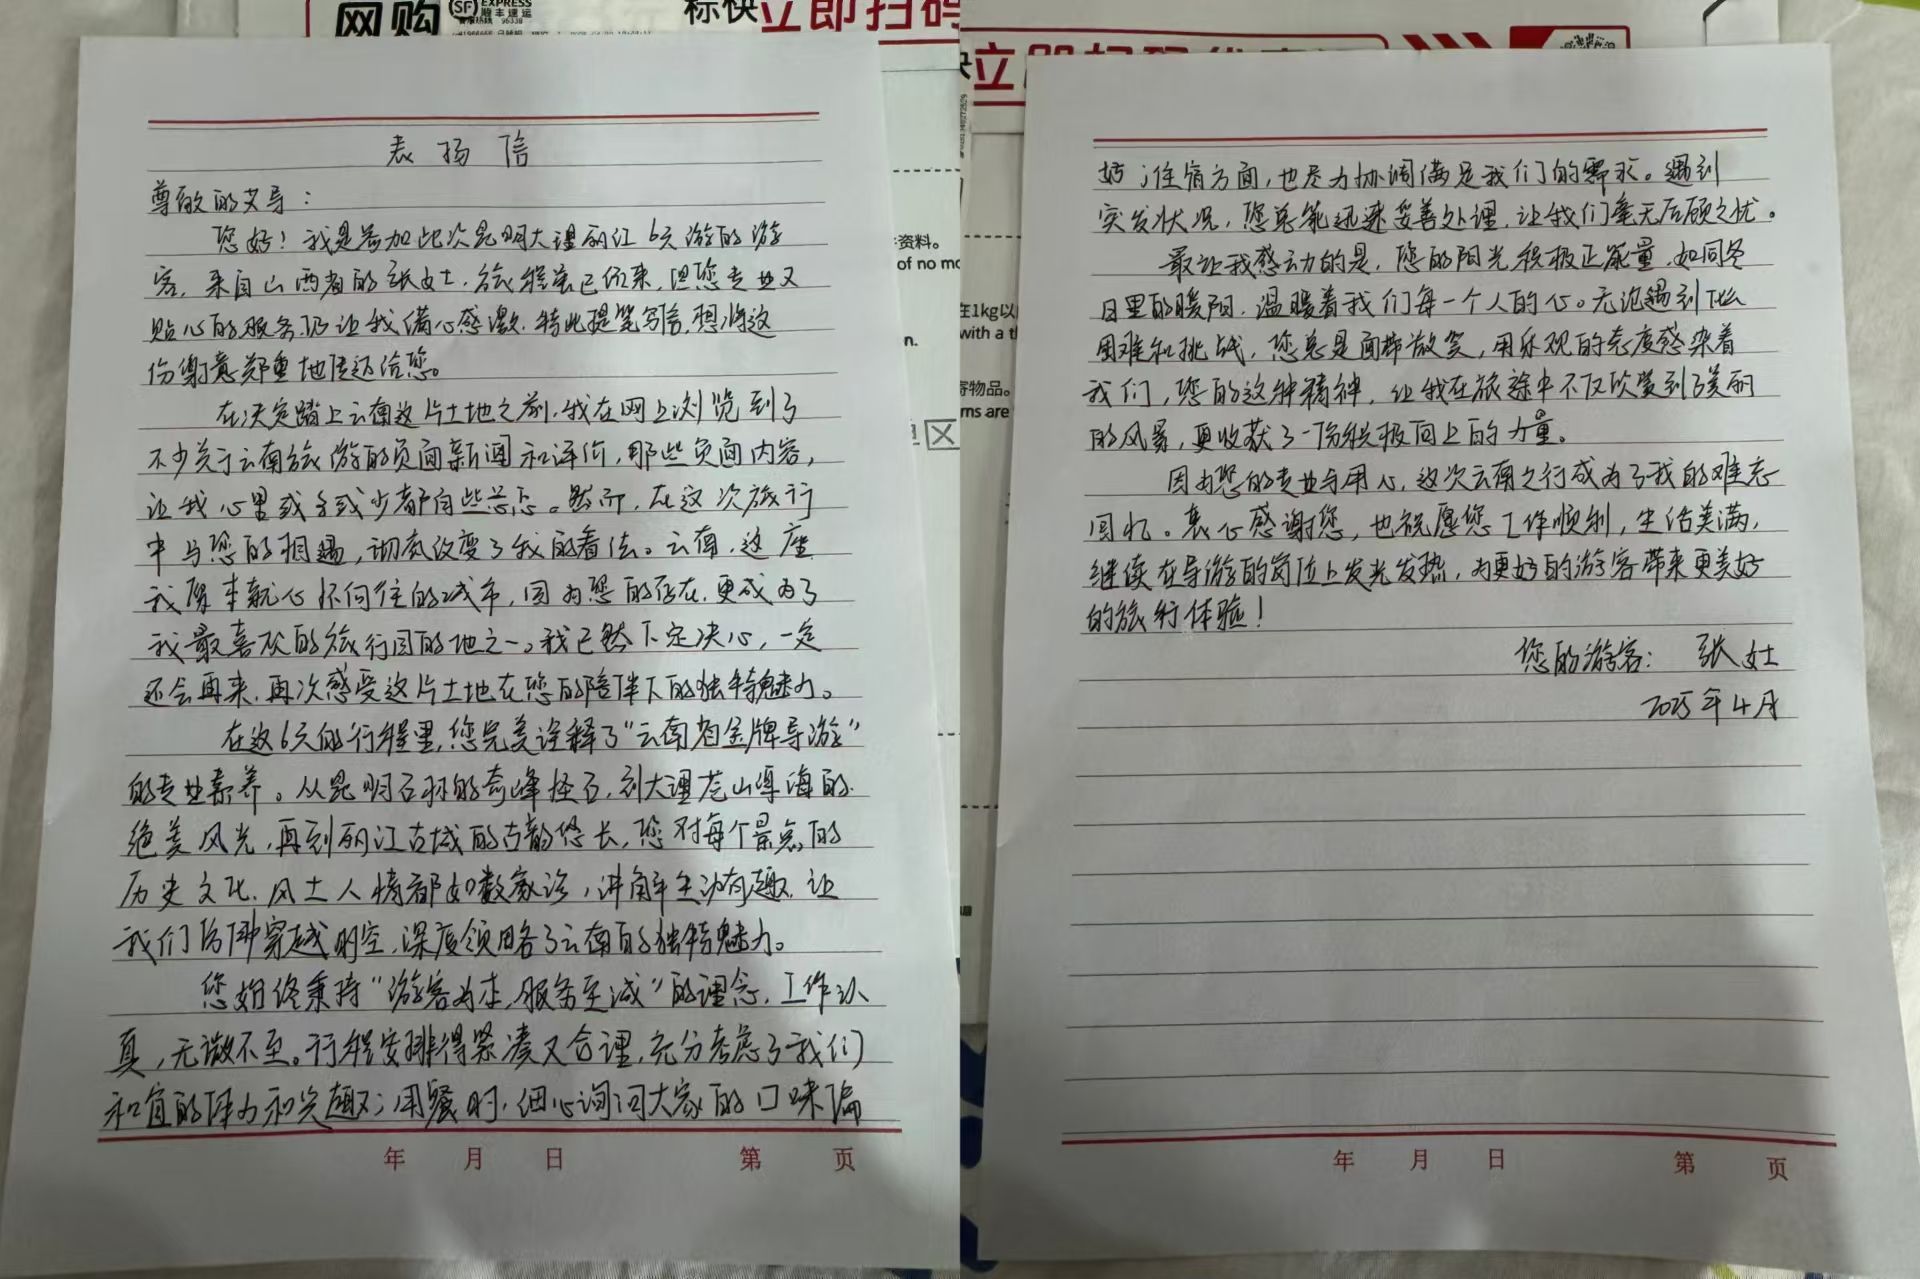 网购
SF EXPRESS
顺丰速运
标快
立即扫码
资料。
of no mo
在1kg以
with a t
n.
寄物品。
ms are
表扬信
尊敬的艾导：
您好！我是参加此次昆明大理丽江6天游的游
客，来自山西省的张女士，旅程虽已结束，但您专业又
贴心的服务仍让我满心感激，特此提笔写信，想将这
份谢意郑重地传达给您。
在决定踏上云南这片土地之前，我在网上浏览到了
不少关于云南旅游的负面新闻和评价，那些负面内容，
让我心里或多或少都有些忐忑。然而，在这次旅行
中与您的相遇，彻底改变了我的看法。云南，这座
我原本就心怀向往的城市，因为您的存在，更成为了
我最喜欢的旅行目的地之一。我已然下定决心，一定
还会再来，再次感受这片土地在您的陪伴下的独特魅力。
在这6天的行程里，您完美诠释了“云南省金牌导游”
的专业素养。从昆明石林的奇峰怪石，到大理苍山洱海的
绝美风光，再到丽江古城的古韵悠长，您对每个景点的
历史文化、风土人情都如数家珍，讲解生动有趣，让
我们仿佛穿越时空，深度领略了云南的独特魅力。
您始终秉持“游客为本，服务至诚”的理念，工作认
真，无微不至。行程安排得紧凑又合理，充分考虑了我们
和宜的体力和兴趣；用餐时，细心询问大家的口味偏
年 月 日 第 页
立即扫码
好；住宿方面，也尽力协调满足我们的需求。遇到
突发状况，您总能迅速妥善处理，让我们毫无后顾之忧。
最让我感动的是，您的阳光积极正能量，如同冬
日里的暖阳，温暖着我们每一个人的心。无论遇到什么
困难和挑战，您总是面带微笑，用乐观的态度感染着
我们，您的这种精神，让我在旅途中不仅欣赏到了美丽
的风景，更收获了一份积极向上的力量。
因为您的专业与用心，这次云南之行成为了我的难忘
回忆。衷心感谢您，也祝愿您工作顺利，生活美满，
继续在导游的岗位上发光发热，为更好的游客带来更美好
的旅行体验！
您的游客：张女士
2025年4月
年 月 日 第 页